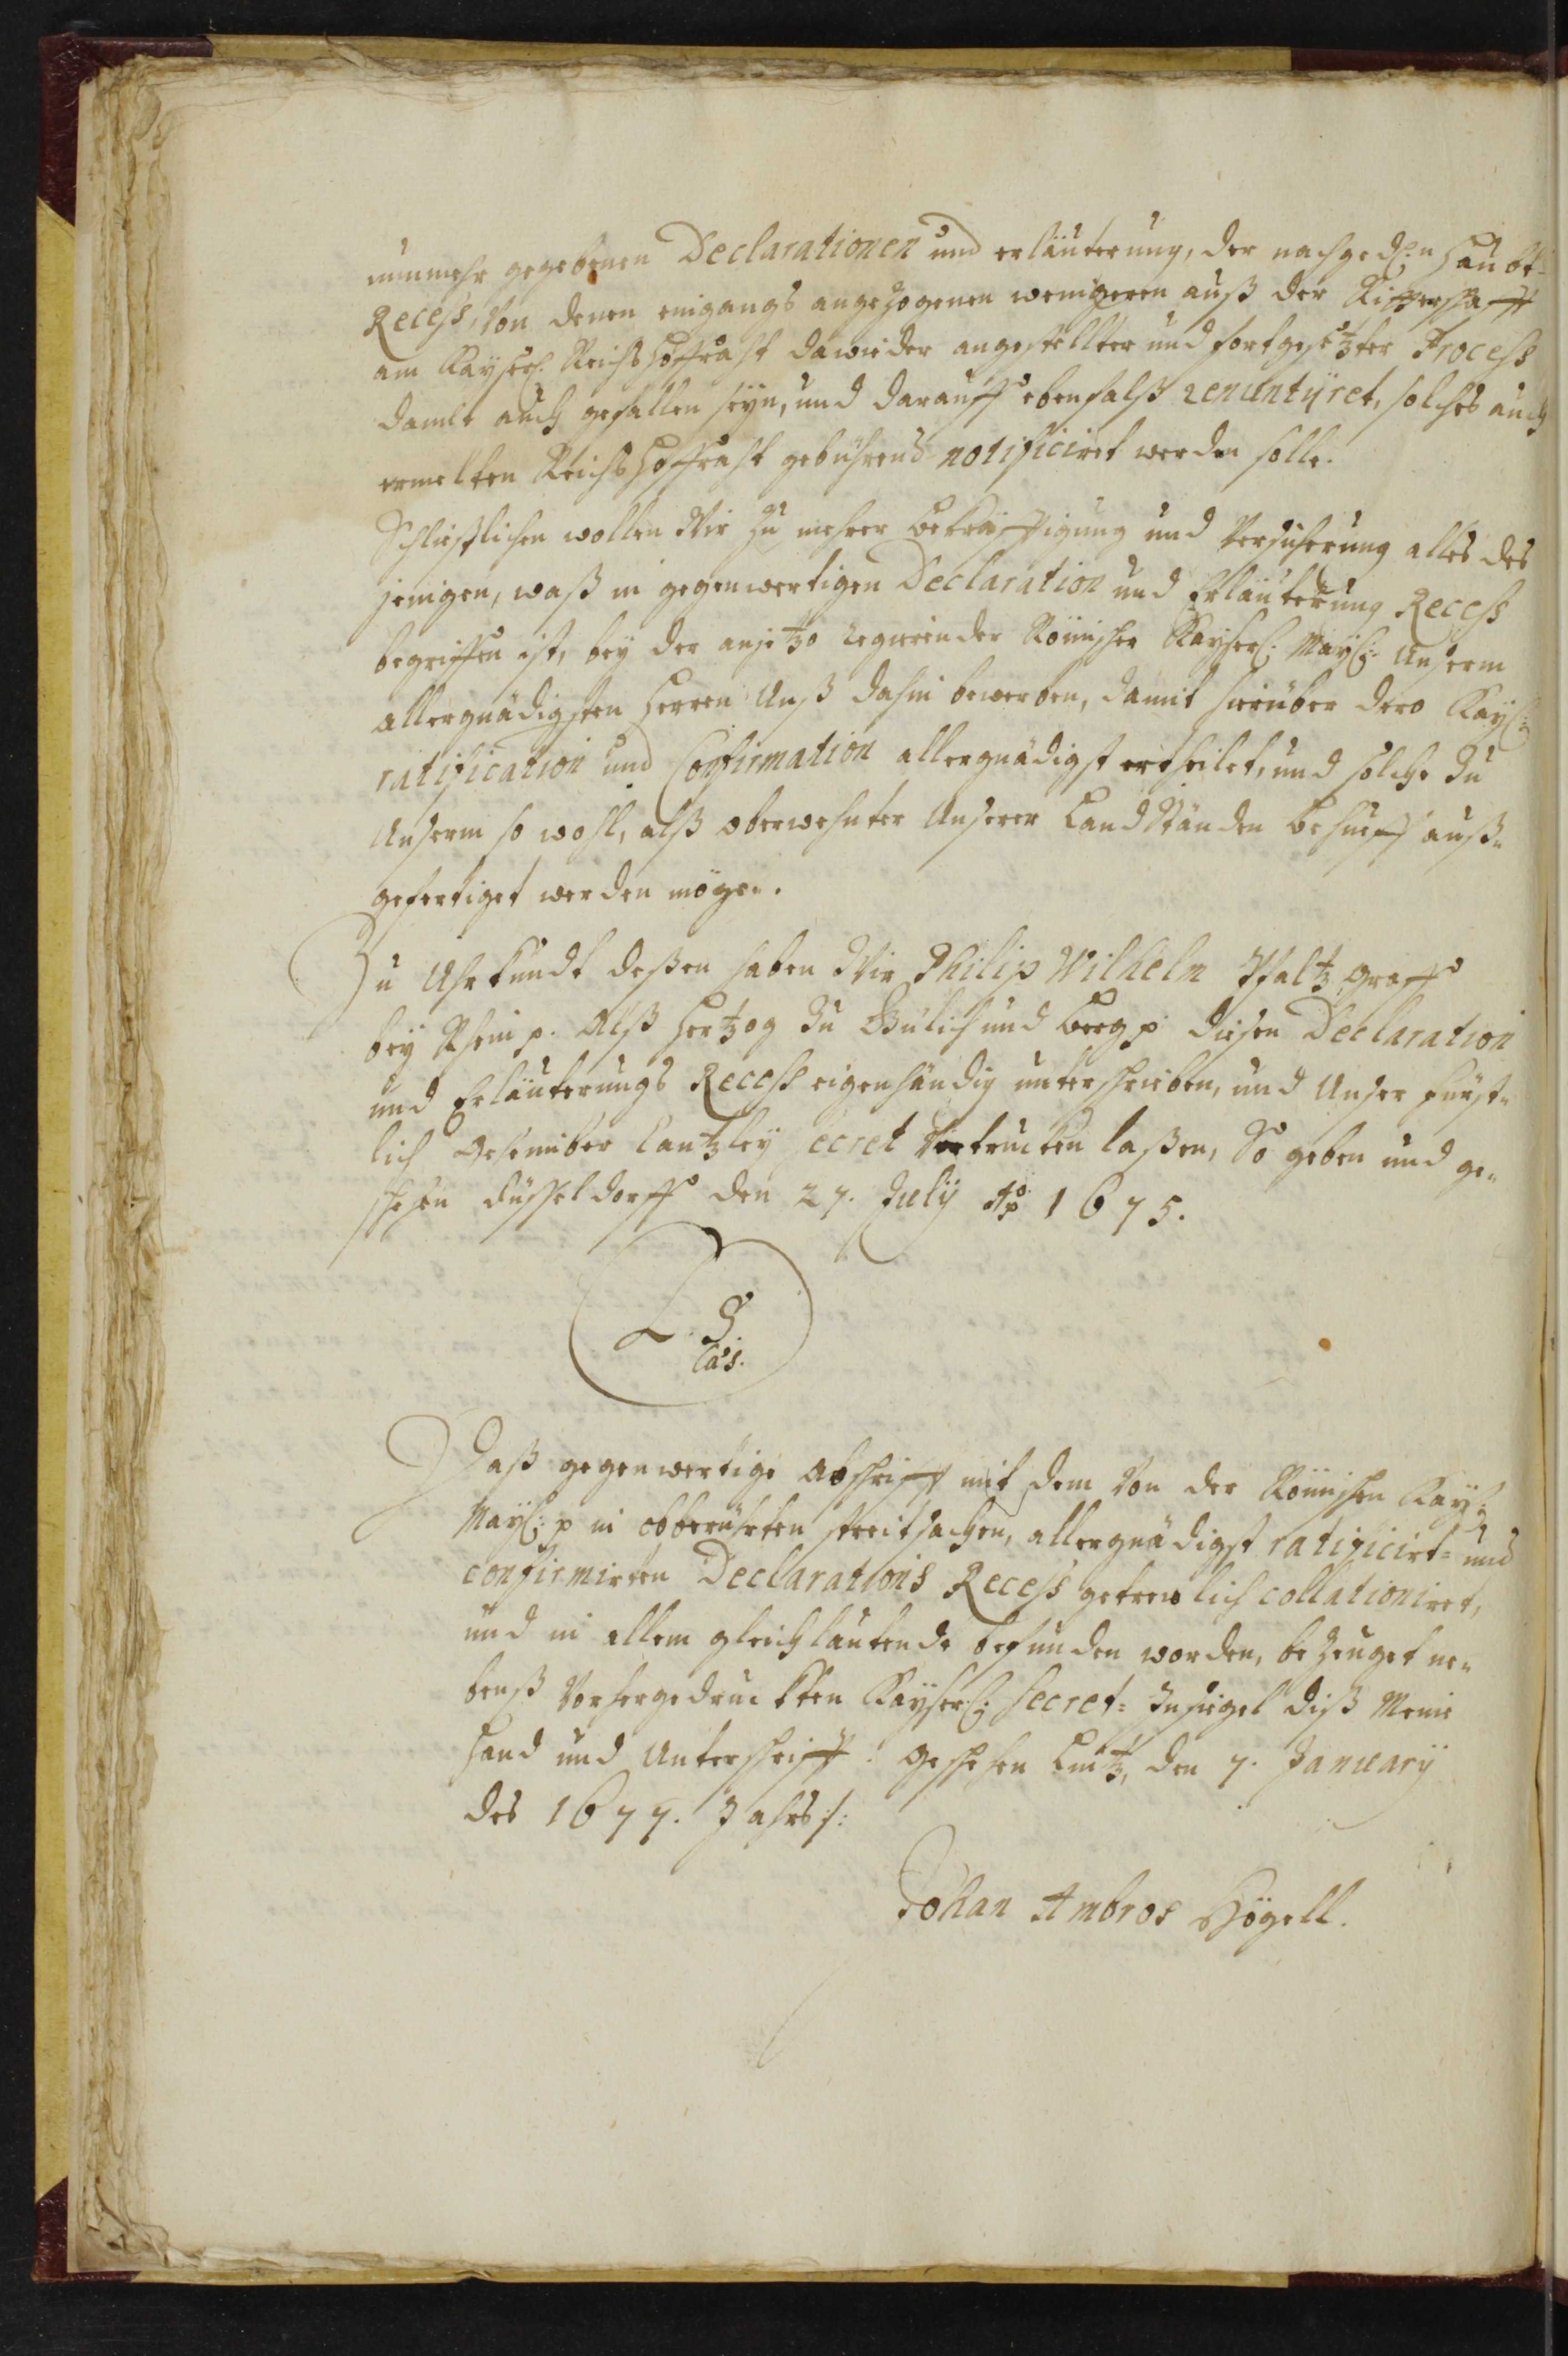 nunmehr gegebenen Declarationen und erläuterung, der nachged[ch]n Haubt-
Recess, Von denen eingangs angezogenen wenigeren auß der Ritterschafft
am Kayserl. Reichs Hoffraht dawieder angestellter und fortgesetzter Process
damit auch gefallen seyn, und darauff ebenfalß renuntÿret, solches auch
ermelten Reichs Hoffraht gebührend notificiret werden solle.
Schließlichen wollen Wir zu mehrer bekräfftigung und Versicherung alles des
jenigen, waß in gegenwertigen Declaration und Erläuterung Recess
begriffen ist, beÿ der anjetzo regierender Römischer Kayserl: Maÿl: Unserm
allergnädigsten Herren Unß dahin bewerben, damit hierüber dero Kaÿl:
ratification und Confirmation allergnädigst ertheilet, und solche zu
Unserm so wohl, alß oberwehnter Unserer Land Ständen behueff auß-
gefertiget werden mögen.
Zu Uhrkundt deßen haben Wir Philip Wilhelm Pfaltz Graff
beÿ Rhein p. Alß Hertzog zu Gülich und Berg p. diesen Declaration
und Erläuterungs Recess eigenhändig unterschrieben, und Unser fürst-
lich Geheimber Cantzleÿ Secret Vortrucken laßen, So geben und ge-
schehen Düsseldorff den 27. Julÿ Ao 1675.
L. S.
Cas.
Daß gegenwertige Abschrifft mit dem Von der Römischen Kaÿl:
Maÿl: p in obberührten streitsachen, allergnädigst ratificirt- und
confirmirten Declarations Recess getrewlich collationiret,
und in allem gleichlautende befunden worden, bezeuget ne-
benß Vorhergedruckten Kaÿserl: Secret- Insiegel diß Meine
Hand und Unterschrifft. Geschehen Lintz, den 7. Januarÿ
des 1677. Jahrs /:
Johan Ambros Högell.